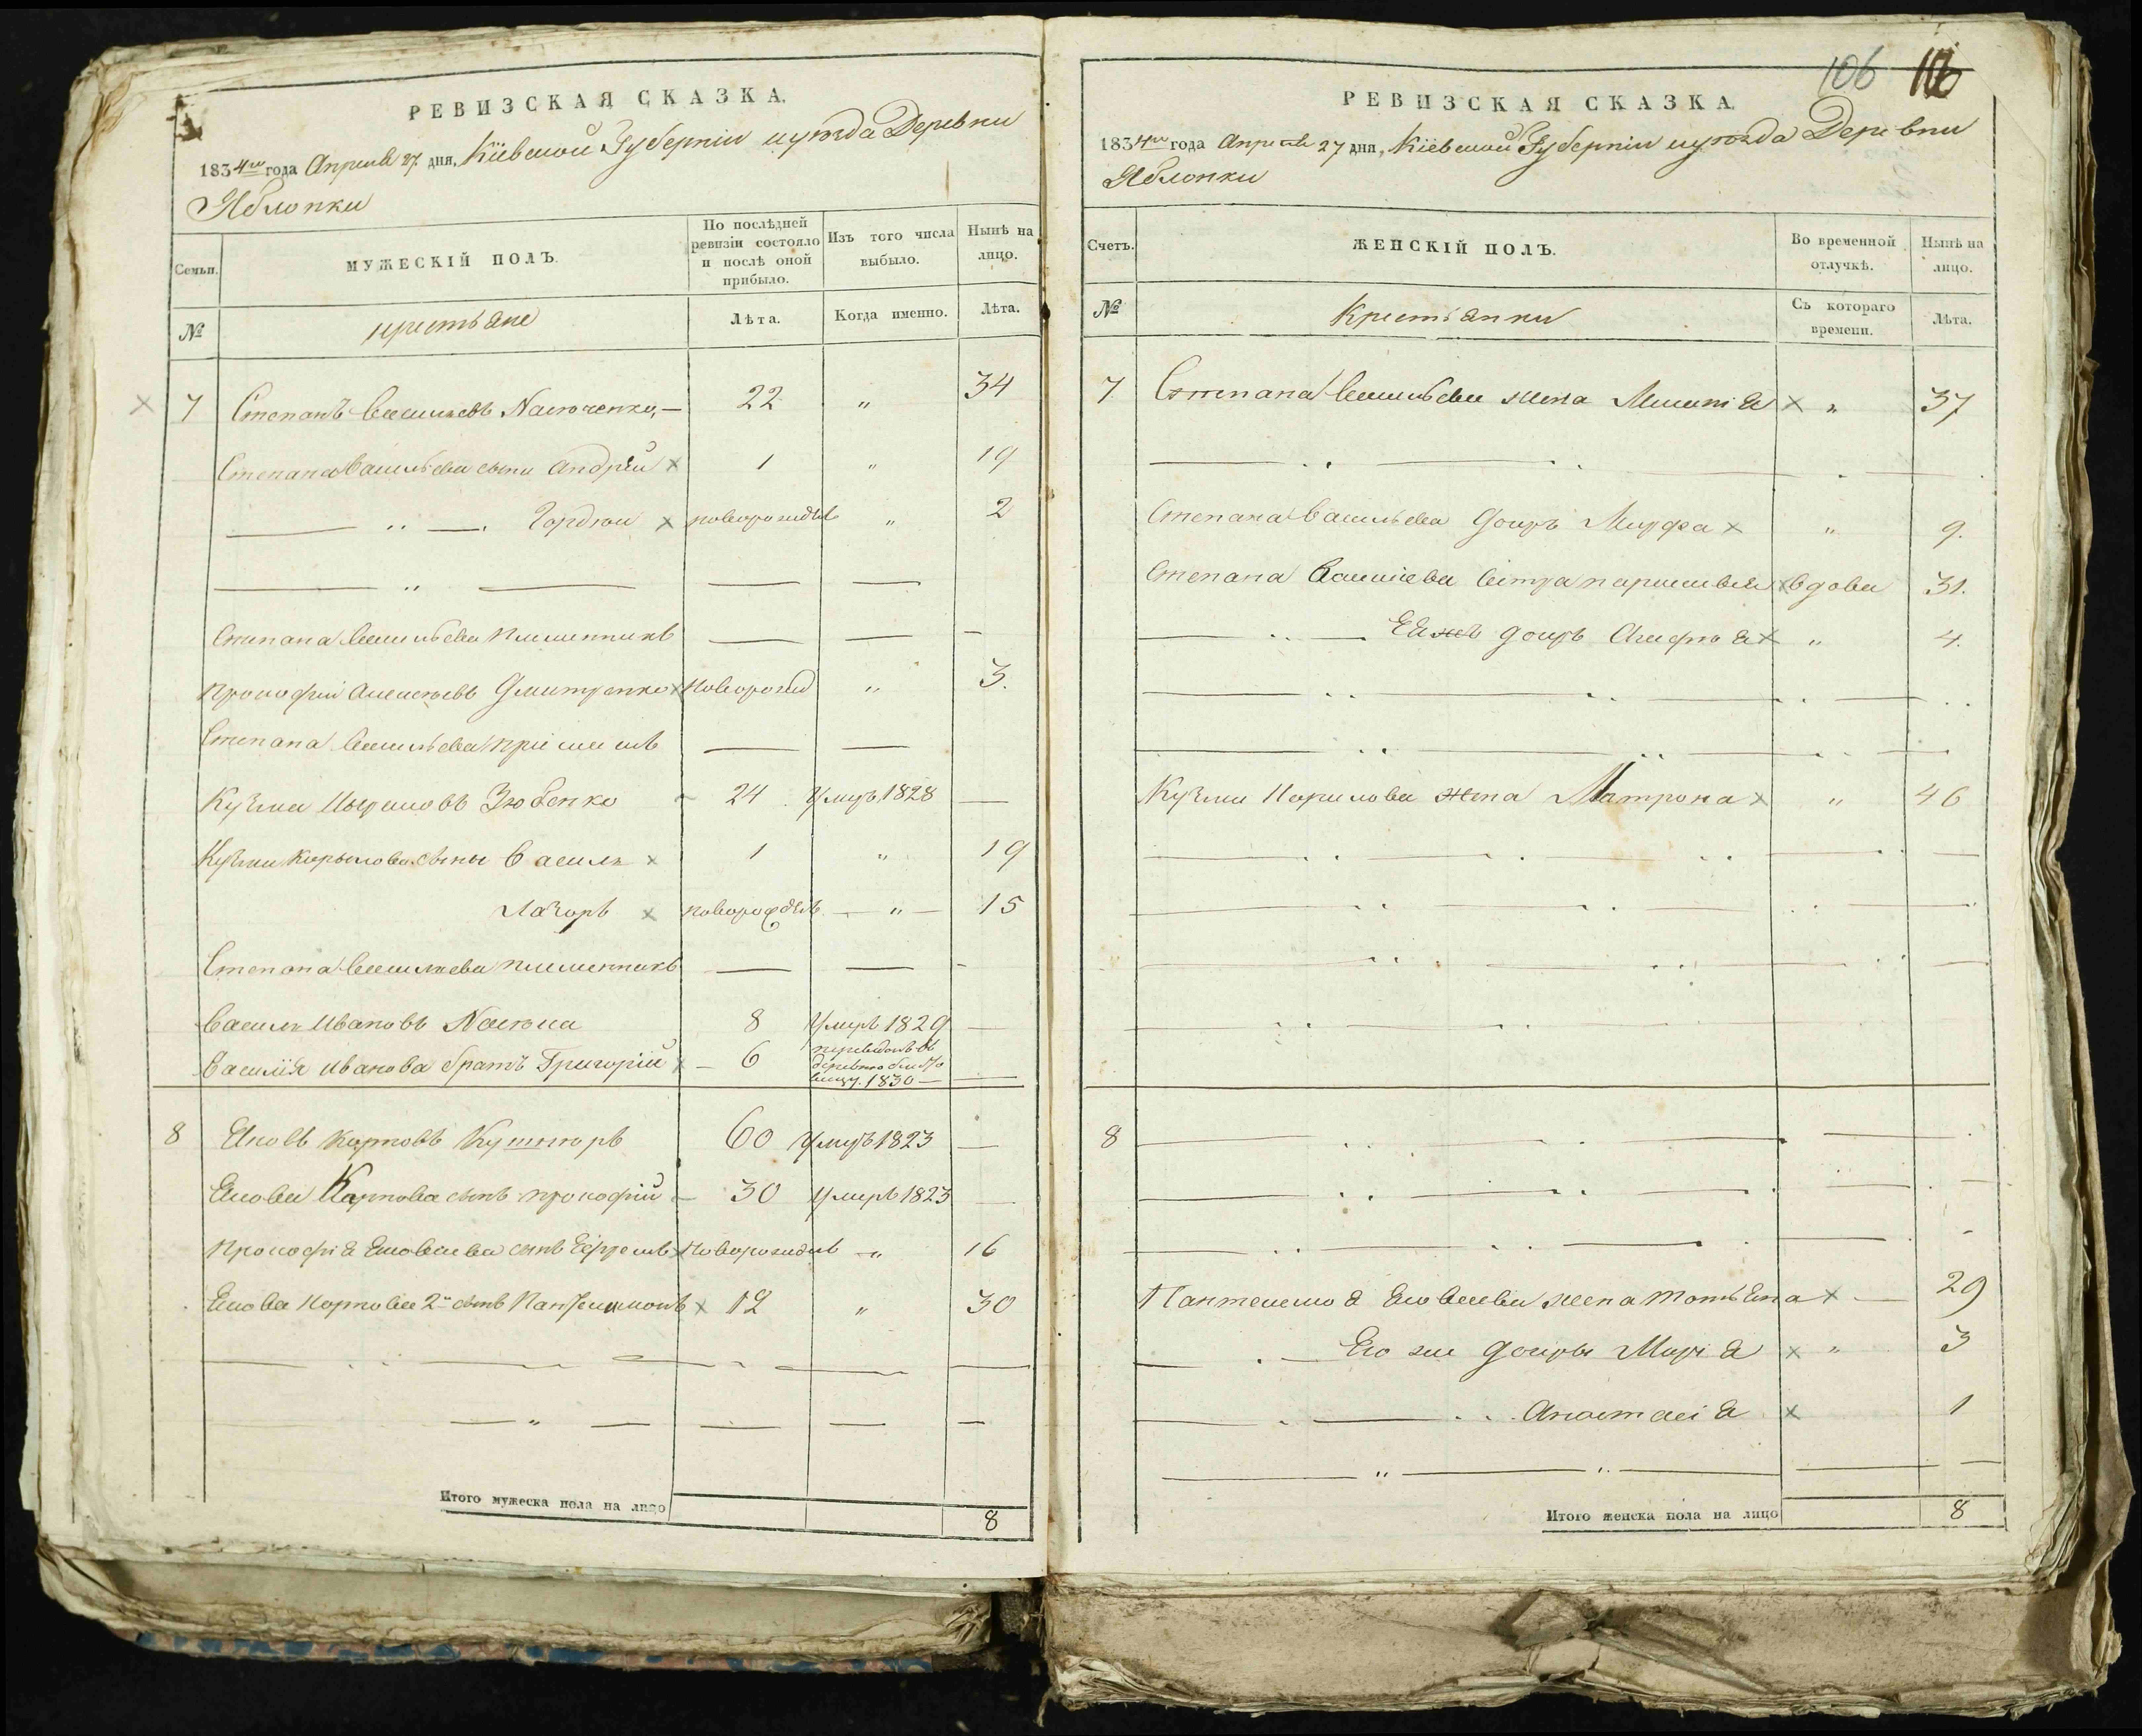 РЕВИЗСКАЯ СКАЗКА.
1834го года Апреля 27 дня, Кіевской Губерніи и уѣзда Деревни
Яблонки
Семьи.
МУЖЕСКІЙ ПОЛЪ.
По послѣдней ревизіи состояло и послѣ оной прибыло.
Изъ того числа выбыло.
Нынѣ на лицо.
№
крестьяне
Лѣта.
Когда именно.
Лѣта.
7 Степанъ Васильевъ — 22 " 34
Степана Васильева сыни Андрей × 1 " 19
— " — Гордѣй × новорожден " 2
Степана Васильева племянникъ — — —
Прокофій Алексѣевъ Дмитренко × новорожд " 3.
Степана Васильева пріймакъ — —
Кузма Кириловъ Зюбенко 24 Умръ 1828 —
Кузми Кирылова сыны Василь × 1 " 19
Лазорь × новорожден — " — 15
Степана Васильева племянникъ — — -
Василь Ивановъ 8 Умръ 1829 —
Василія Иванова братъ Григорій × — 6 переведенъ въ деревню 1830 — —
8 Яковъ Карповъ 60 Умръ 1823 —
Якова Карпова сынъ Прокофій — 30 Умръ 1823 —
Прокофія Яковлева сынъ Ефремъ × новорожден — " 16
Якова Карпова 2й сынъ Пантелимонъ × 12 " 30
Итого мужеска пола на лицо 8
106
РЕВИЗСКАЯ СКАЗКА.
1834го года Апреля 27 дня, Кіевской Губерніи и уѣзда Деревни
Яблонки
Счетъ.
ЖЕНСКІЙ ПОЛЪ.
Во временной отлучкѣ.
Нынѣ на лицо.
№
Крестьянки
Съ котораго времени.
Лѣта.
7 Степана Васильева жена × " 37
Степана Васильева дочрь Марфа × " 9.
Степана Васильева сестра × вдова 31.
— " — Ея жъ дочрь Агафія × " 4.
Кузми Кирилова жена Матрона × " 46
8
Пантелемона Яковлева жена Татьяна × — 29
— " — Его же дочры Марія × " 3
— " — Анастасія × 1
Итого женска пола на лицо 8